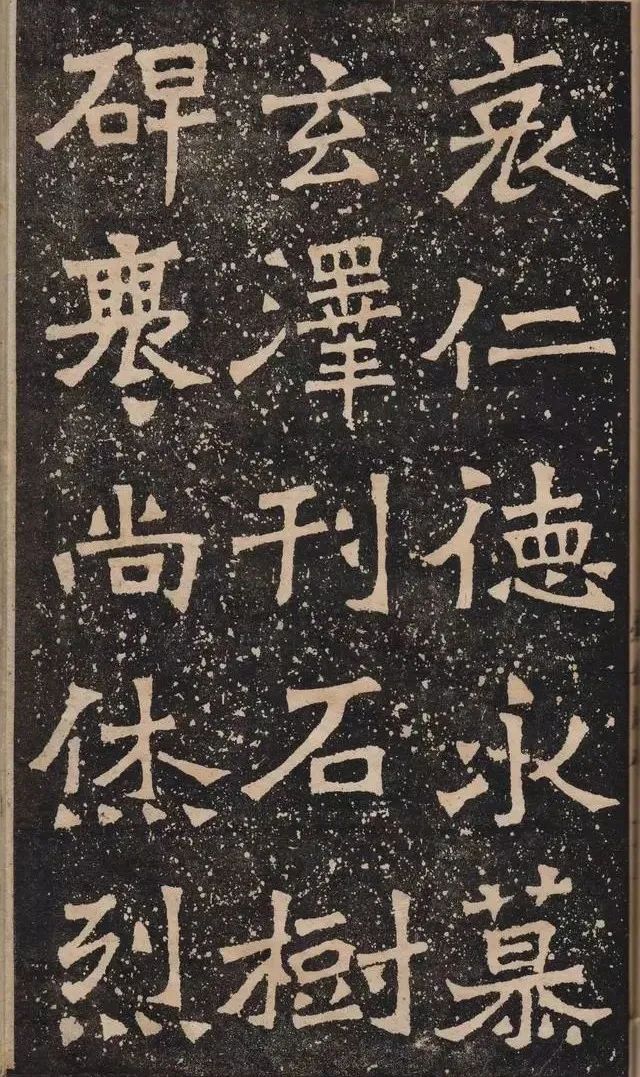 哀仁德永慕
玄澤刊石樹
碑褰尚烋烈